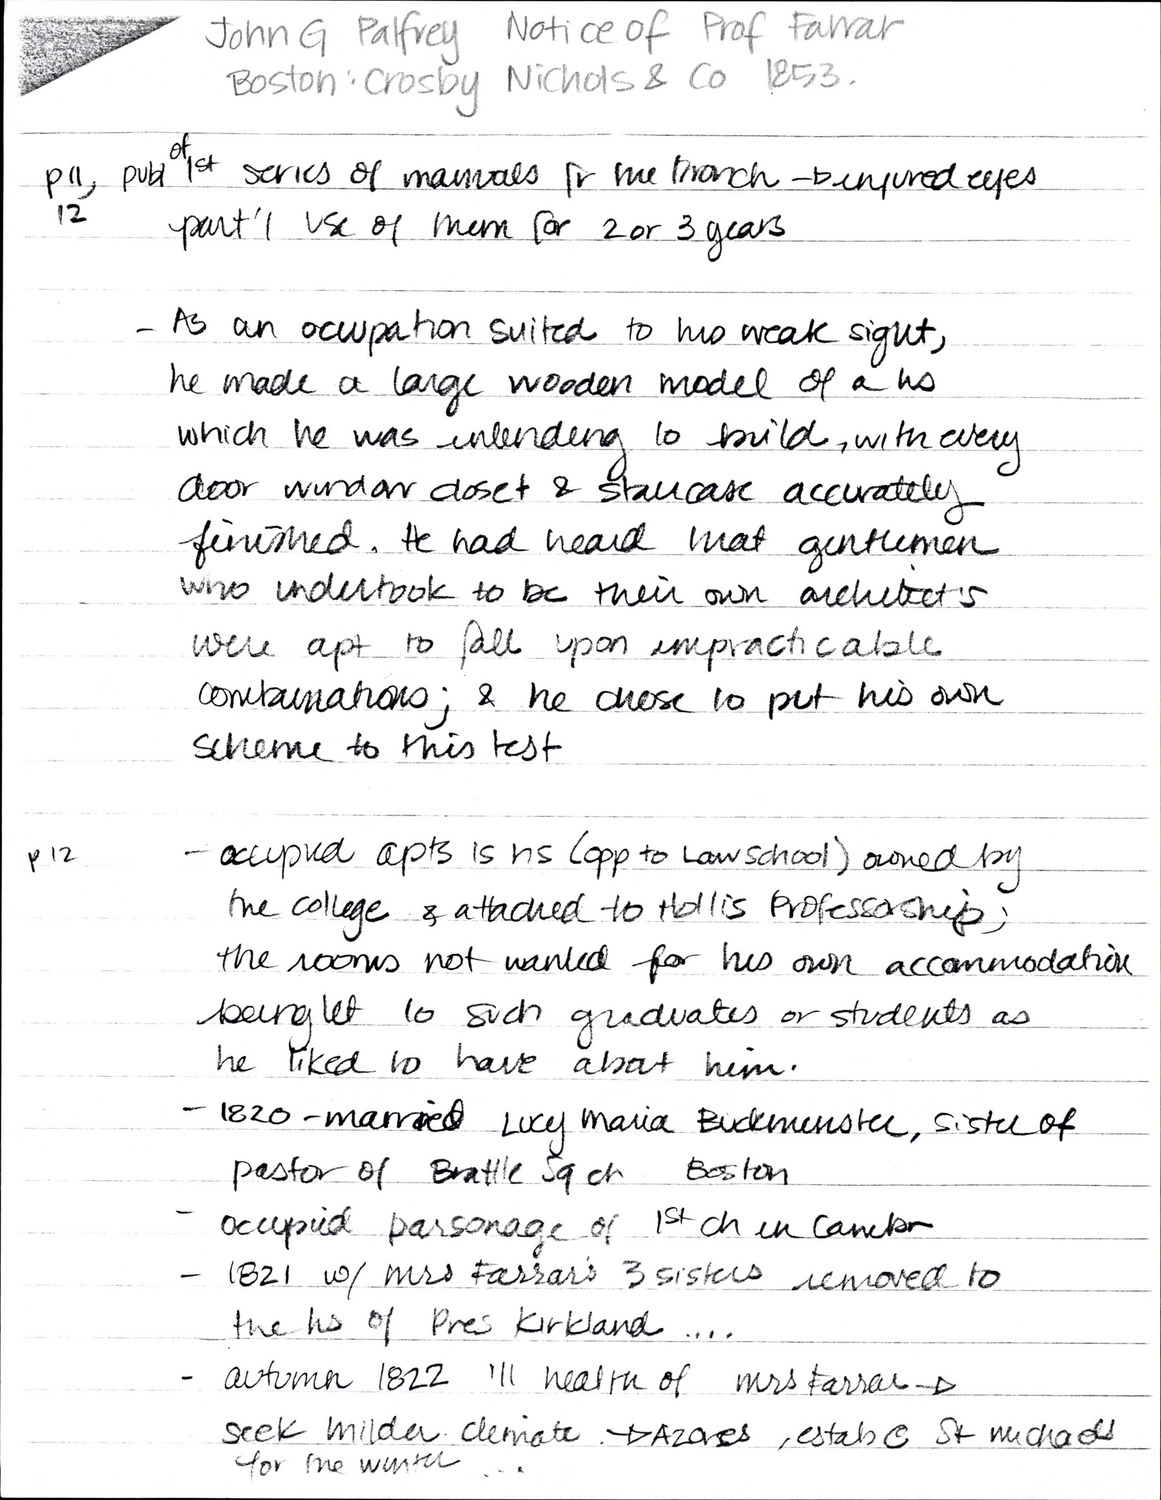 John G Palfrey Notice of Prof Farrar
Boston: Crosby Nichols & Co 1853.
p 11, publ of 1st series of manuals fr the French → injured eyes
12 part'l use of them for 2 or 3 years
- As an occupation suited to his weak sight,
he made a large wooden model of a hs
which he was intending to build, with every
door window closet & staircase accurately
finished. He had heard that gentlemen
who undertook to be their own architect's
were apt to fall upon impracticable
combinations; & he chose to put his own
scheme to this test
p 12 - occupied apts is hs (opp to Law School) owned by
the college & attached to Hollis Professorship;
the rooms not wanted for his own accommodation
being let to such graduates or students as
he liked to have about him.
- 1820 - married Lucy Maria Buckminster, sister of
pastor of Brattle Sq ch Boston
- occupied parsonage of 1st ch in Cambr
- 1821 w/ Mrs Farrar's 3 sisters removed to
the hs of Pres Kirkland ....
- autumn 1822 ill health of Mrs Farrar →
seek milder climate → Azores, estab @ St Michaels
for the winter ...